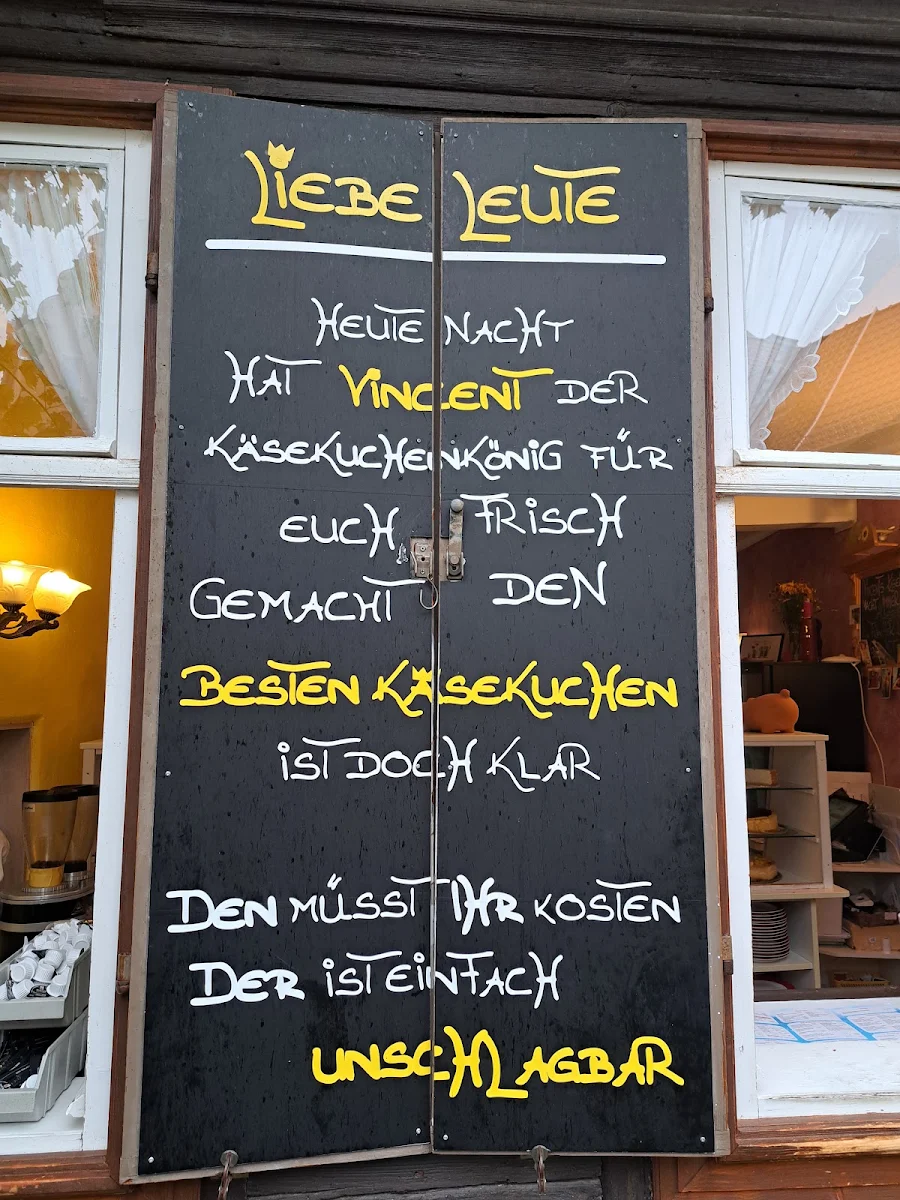 LIEBE LEUTE
HEUTE NACHT
HAT VINCENT DER
KÄSEKUCHENKÖNIG FÜR
EUCH FRISCH
GEMACHT DEN
BESTEN KÄSEKUCHEN
IST DOCH KLAR
DEN MÜSST IHR KOSTEN
DER IST EINFACH
UNSCHLAGBAR